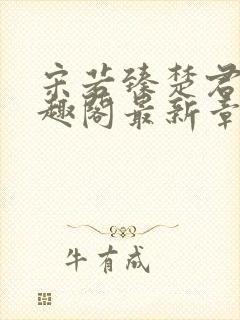 宋若臻楚君
趣阁最新章
牛有成